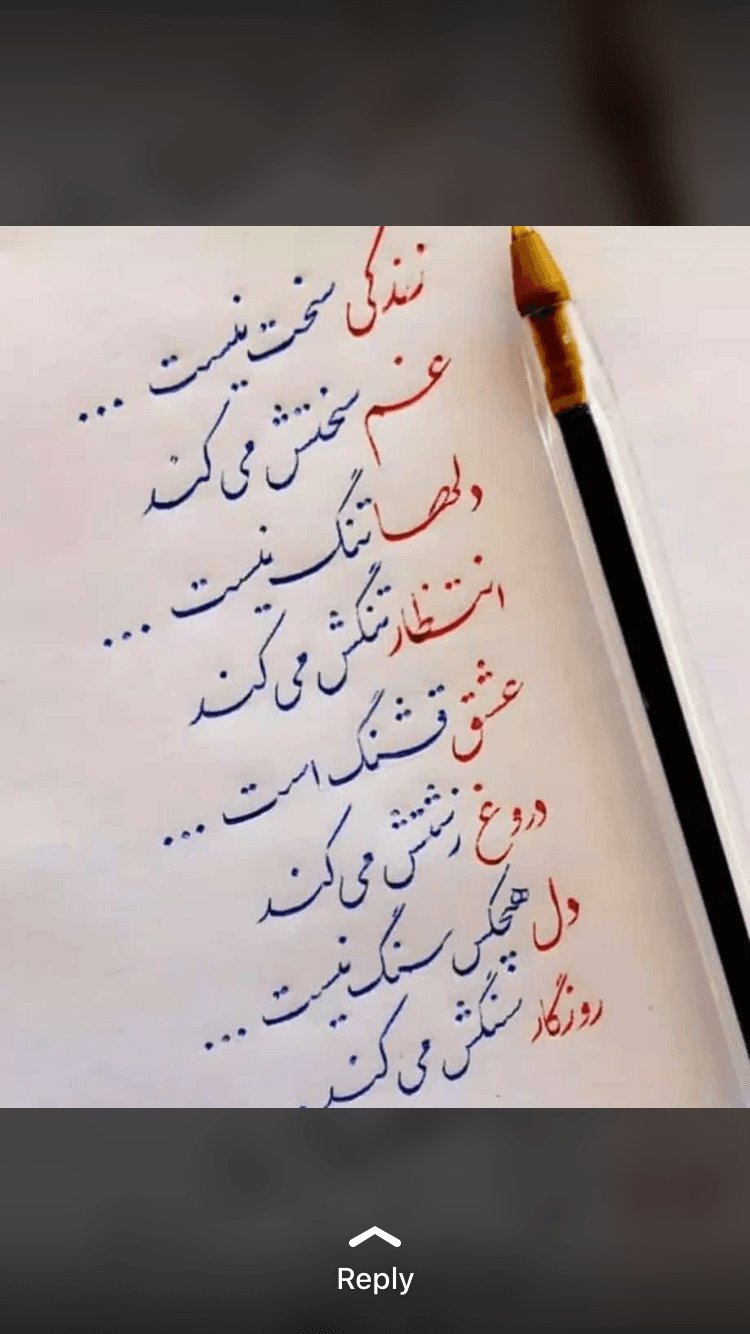 زندگی سخت نیست ...
غم سختش می کند
دلها تنگ نیست ...
انتظار تنگش می کند
عشق قشنگ است ...
دروغ زشتش می کند
دل هیچکس سنگ نیست ...
روزگار سنگش می کند
Reply